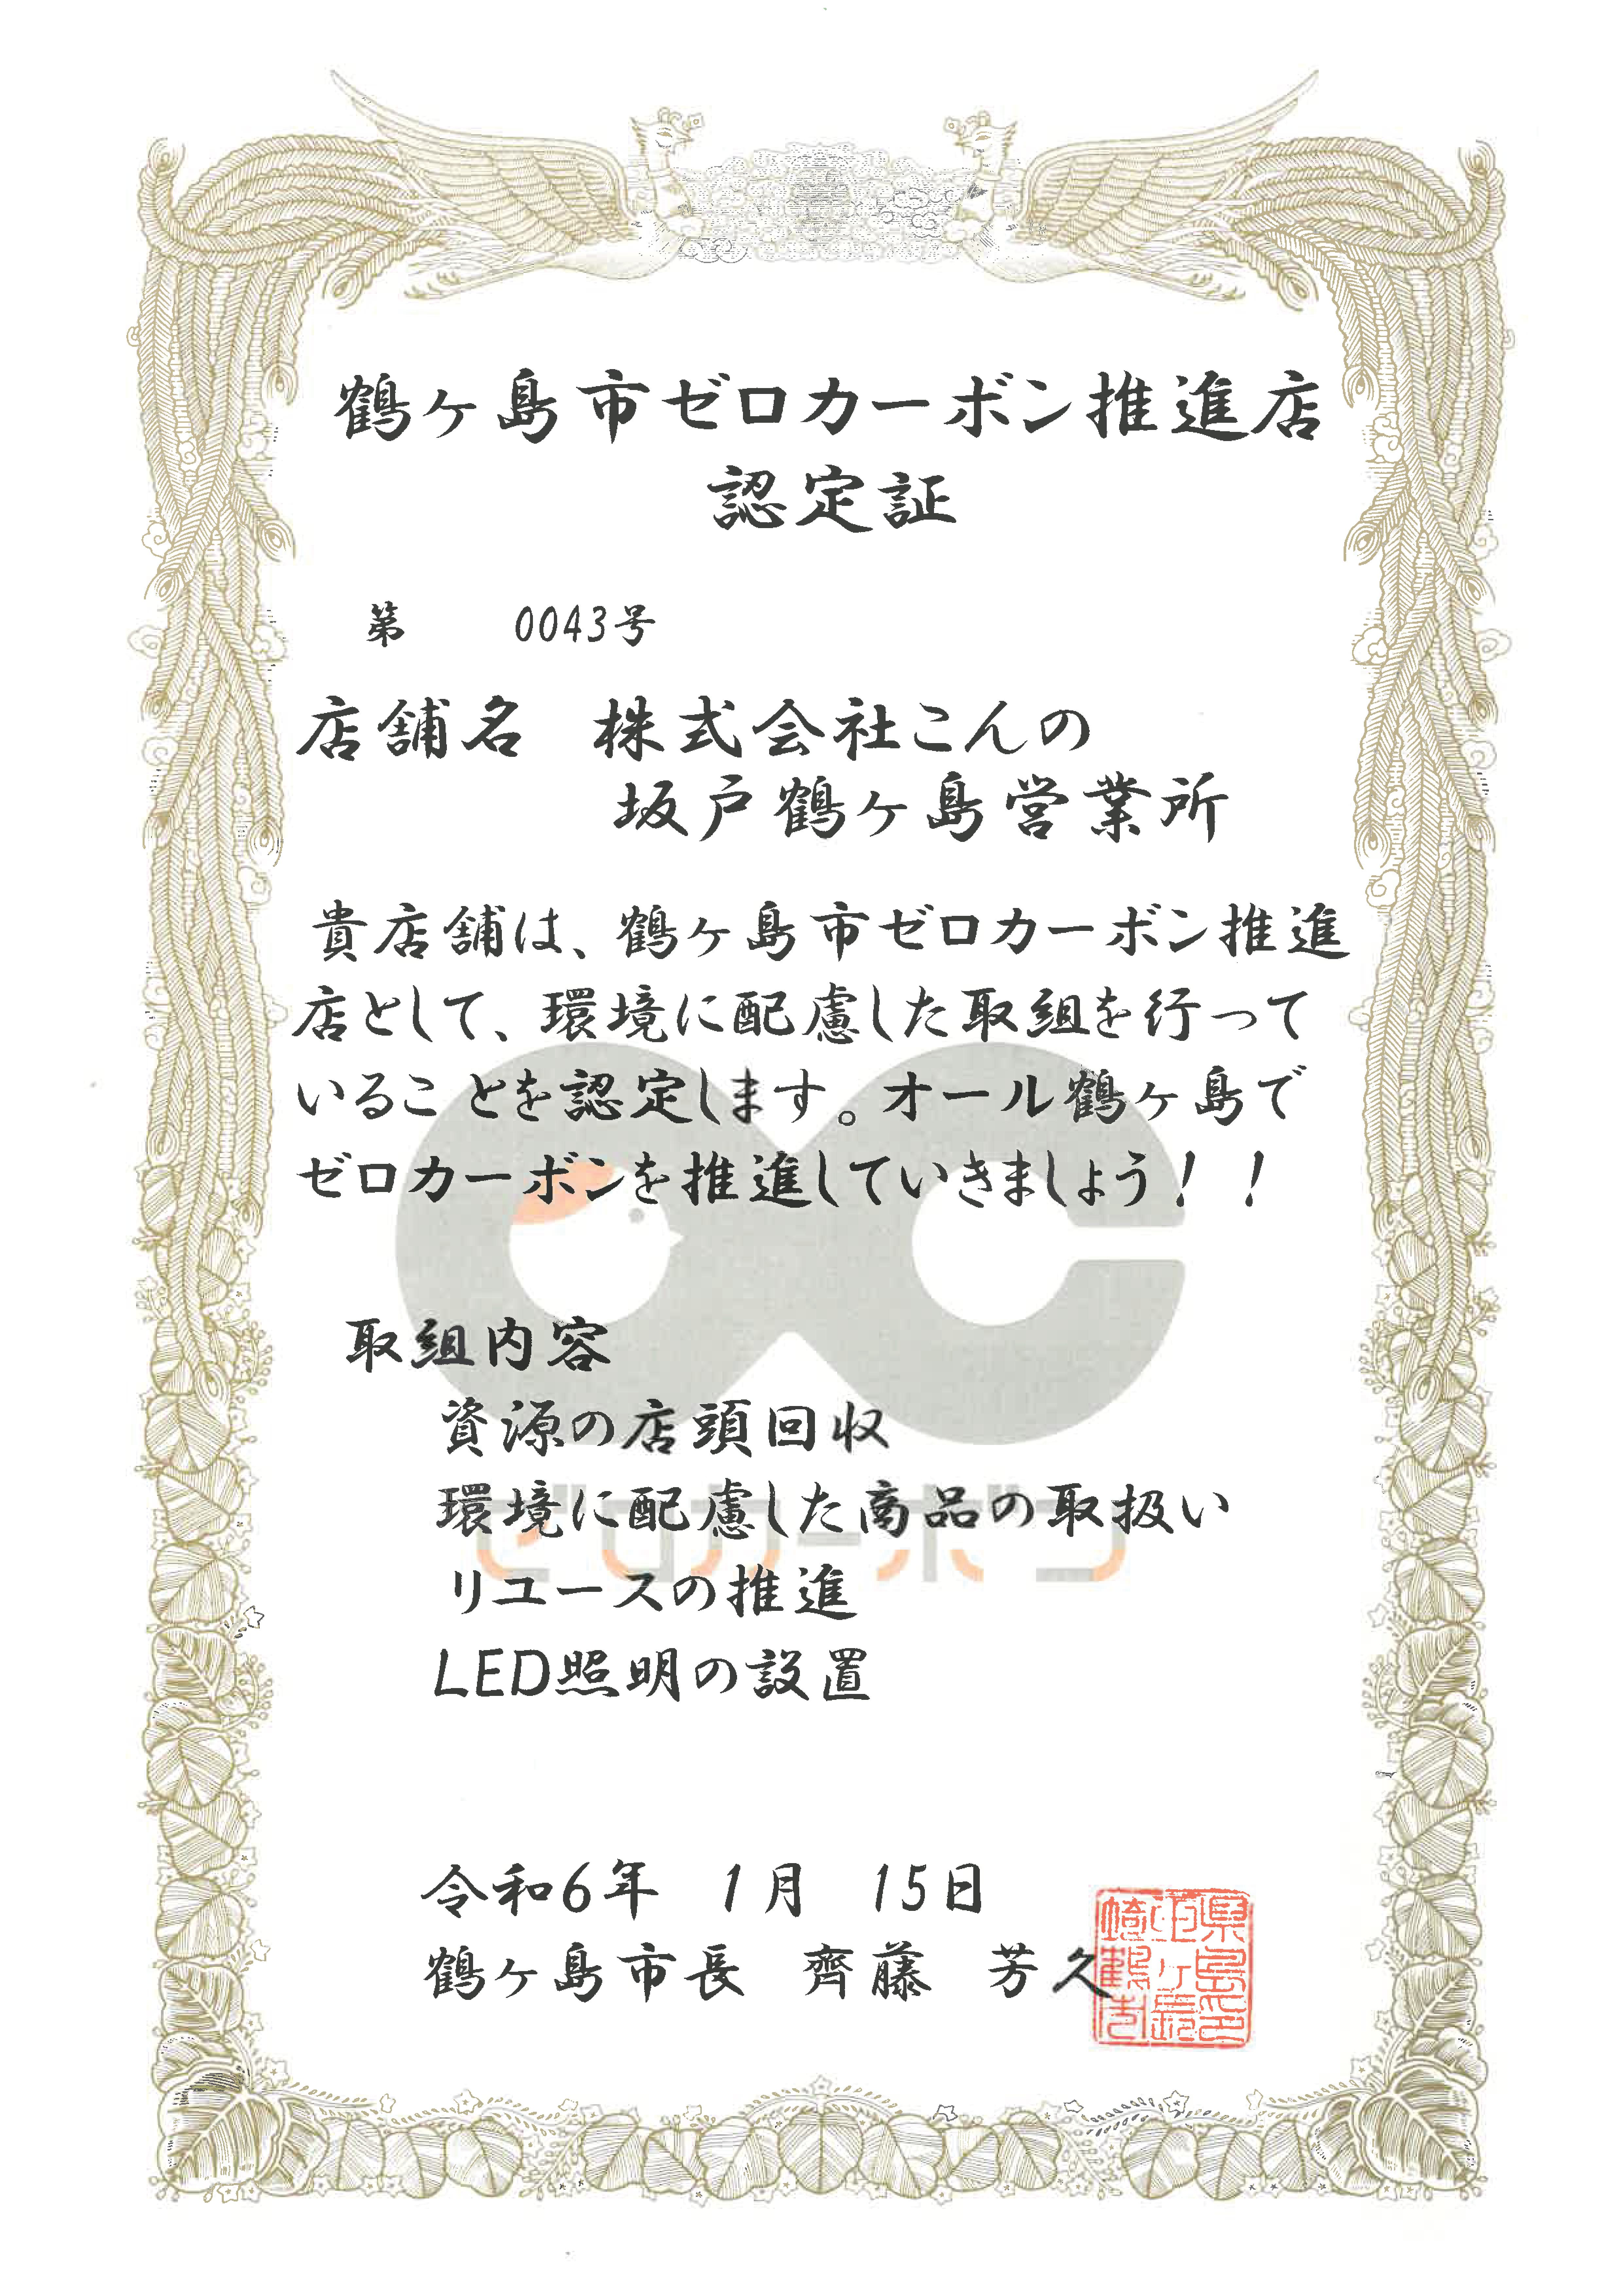 鶴ヶ島市ゼロカーボン推進店
認定証
第 0043号
店舗名 株式会社こんの
坂戸鶴ヶ島営業所
貴店舗は、鶴ヶ島市ゼロカーボン推進
店として、環境に配慮した取組を行って
いることを認定します。オール鶴ヶ島で
ゼロカーボンを推進していきましょう！！
取組内容
資源の店頭回収
環境に配慮した商品の取扱い
ゼロカーボン
リユースの推進
LED照明の設置
令和6年 1月 15日
鶴ヶ島市長 齊藤 芳久
埼玉県
鶴ヶ島
市長印